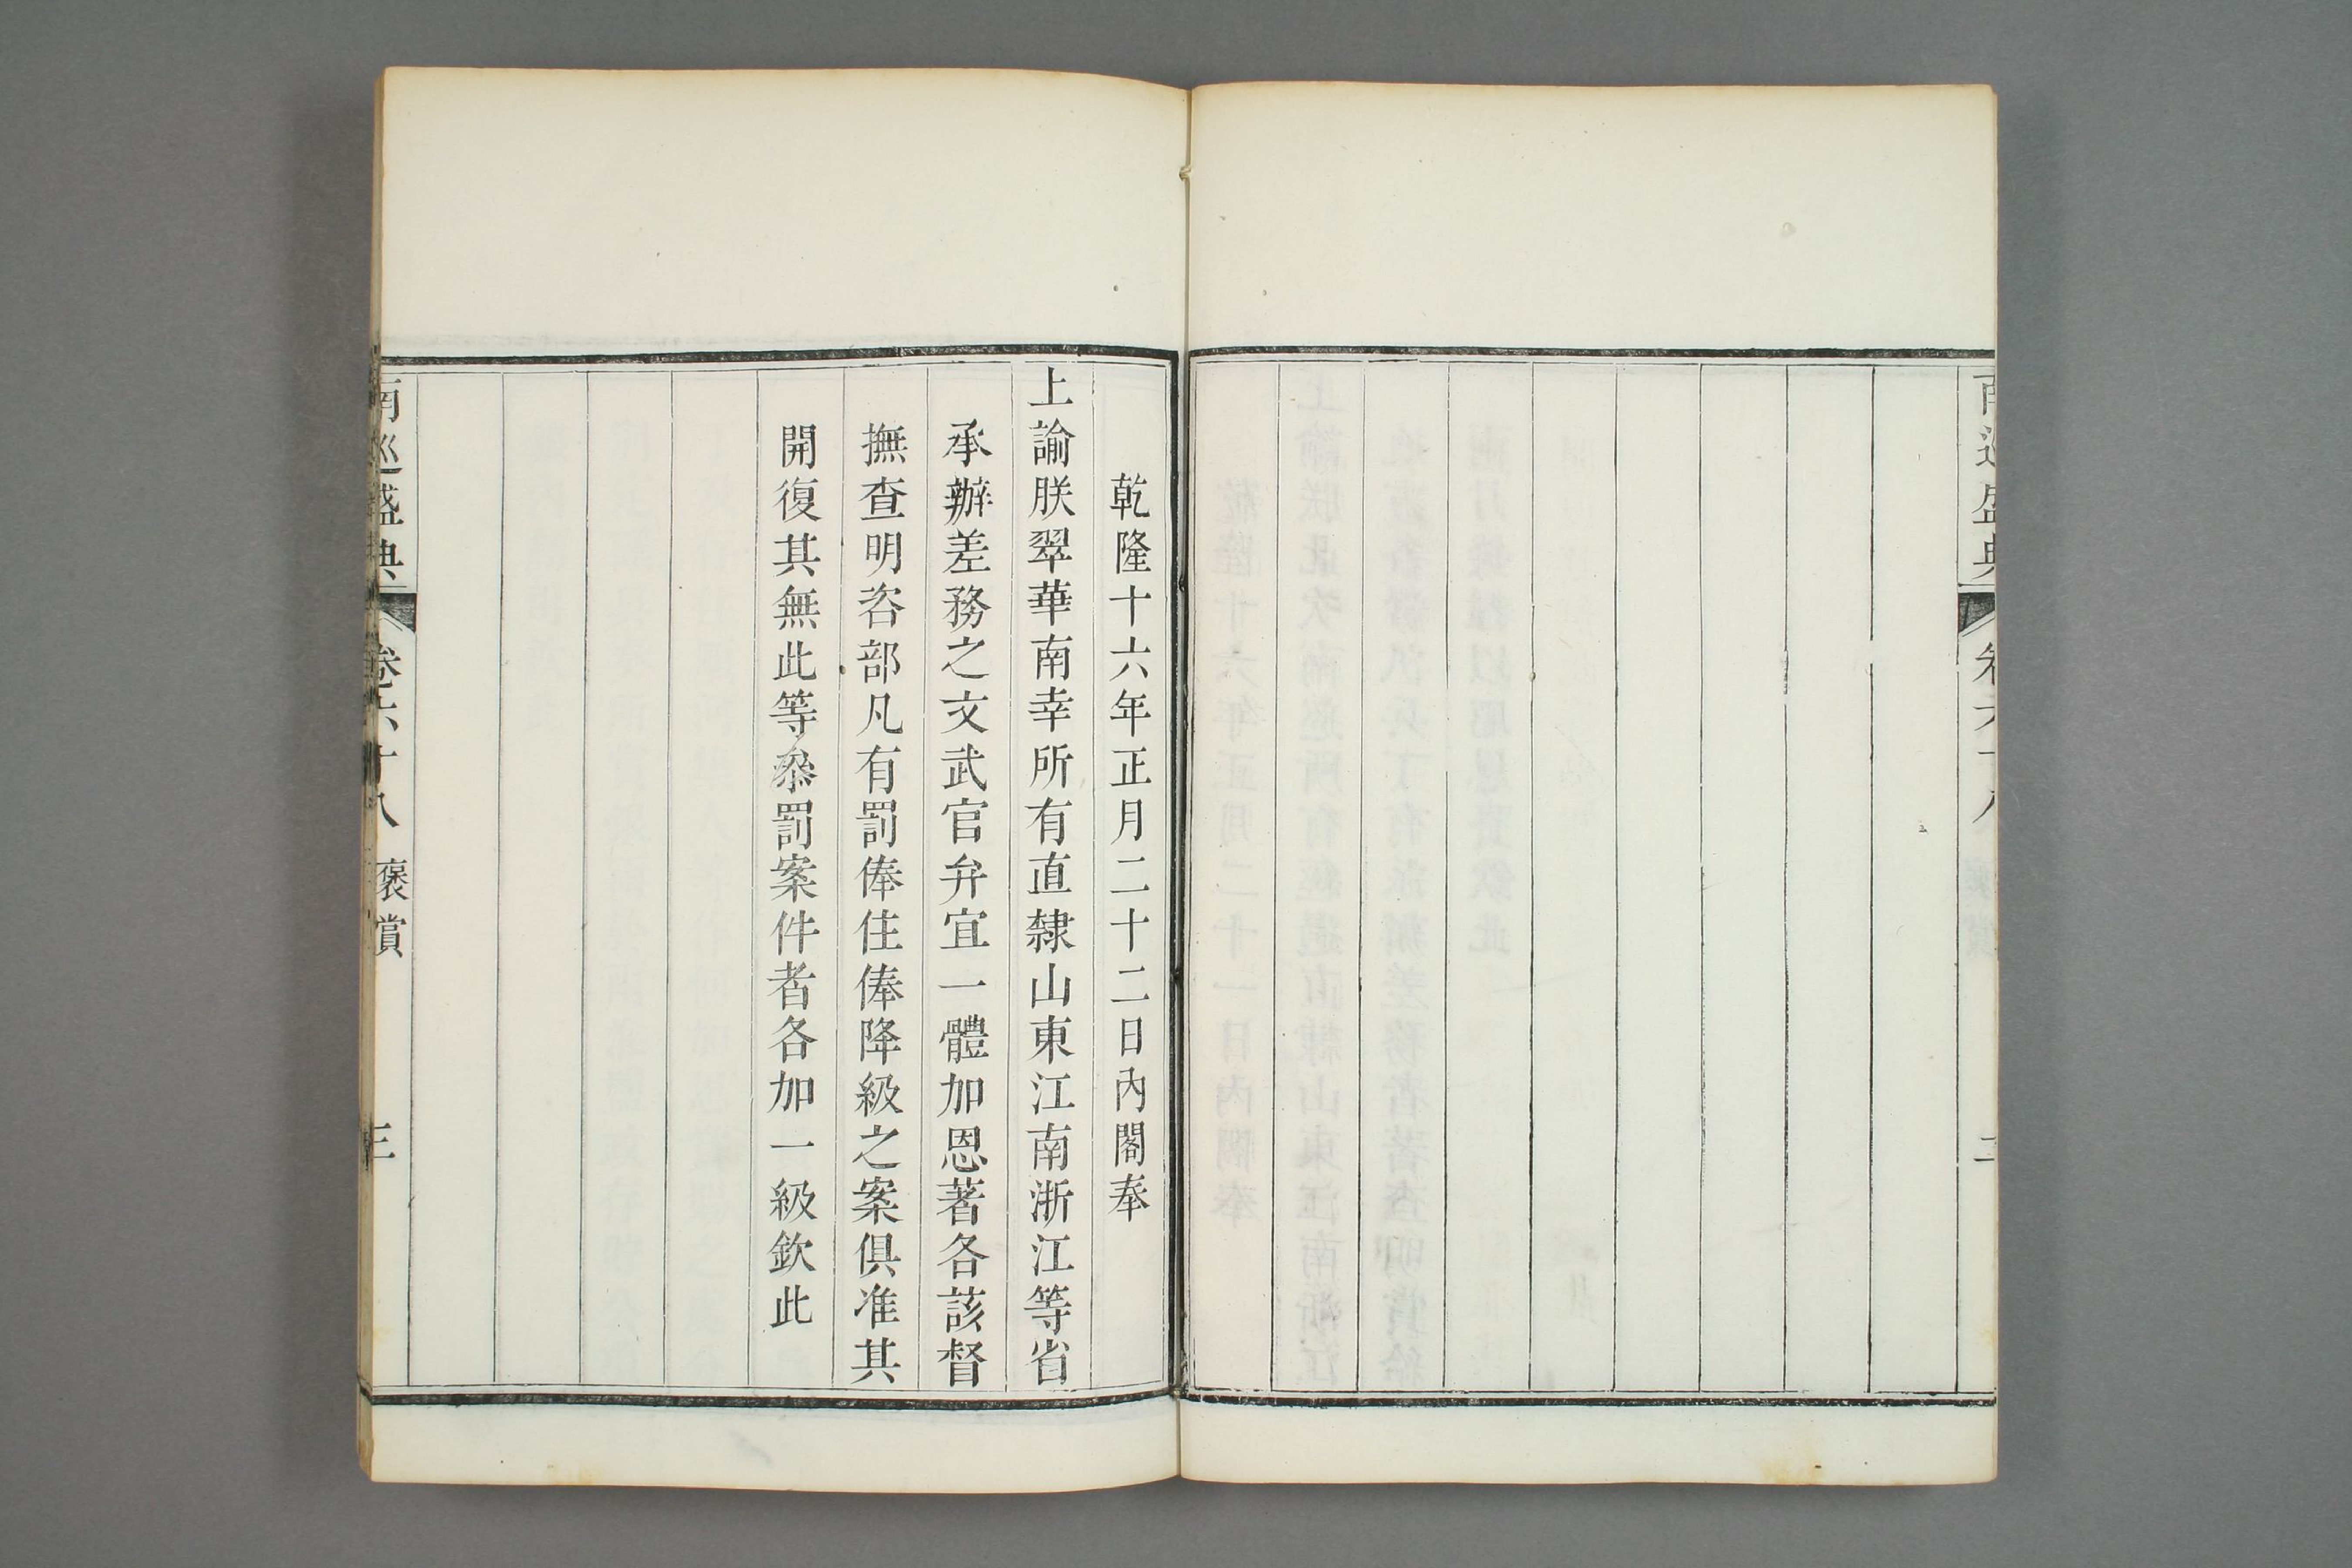 南巡盛典 卷六十八 二
乾隆十六年正月二十二日內閣奉
上諭朕翠華南幸所有直隸山東江南浙江等省
承辦差務之文武官弁宜一體加恩著各該督
撫查明咨部凡有罰俸住俸降級之案俱准其
開復其無此等叅罰案件者各加一級欽此
南巡盛典 卷六十八 褒賞 三